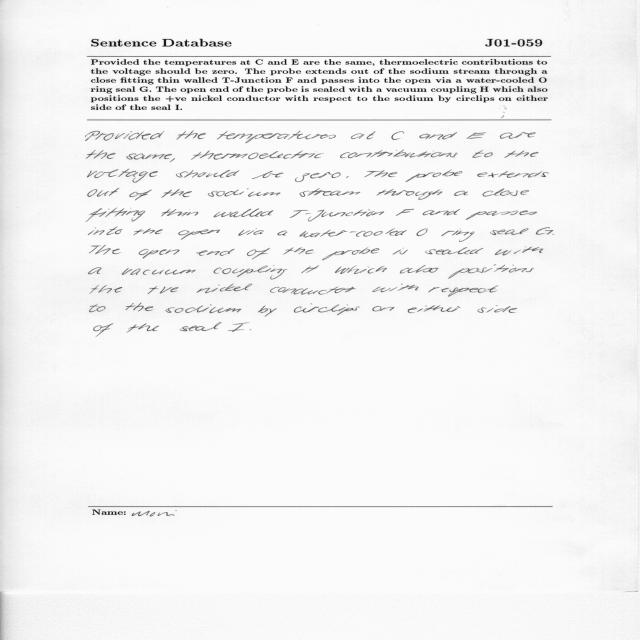 Sentence Database J01-059
Provided the temperatures at C and E are the same, thermoelectric contributions to
the voltage should be zero. The probe extends out of the sodium stream through a
close fitting thin walled T-Junction F and passes into the open via a water-cooled O
ring seal G. The open end of the probe is sealed with a vacuum coupling H which also
positions the +ve nickel conductor with respect to the sodium by circlips on either
side of the seal I.
Provided the temperatures at C and E are
the same, thermoelectric contributions to the
voltage should be zero. The probe extends
out of the sodium stream through a close
fitting thin walled T-Junction F and passes
into the open via a water-cooled O ring seal G.
The open end of the probe is sealed with
a vacuum coupling H which also positions
the +ve nickel conductor with respect
to the sodium by circlips on either side
of the seal I.
Name: